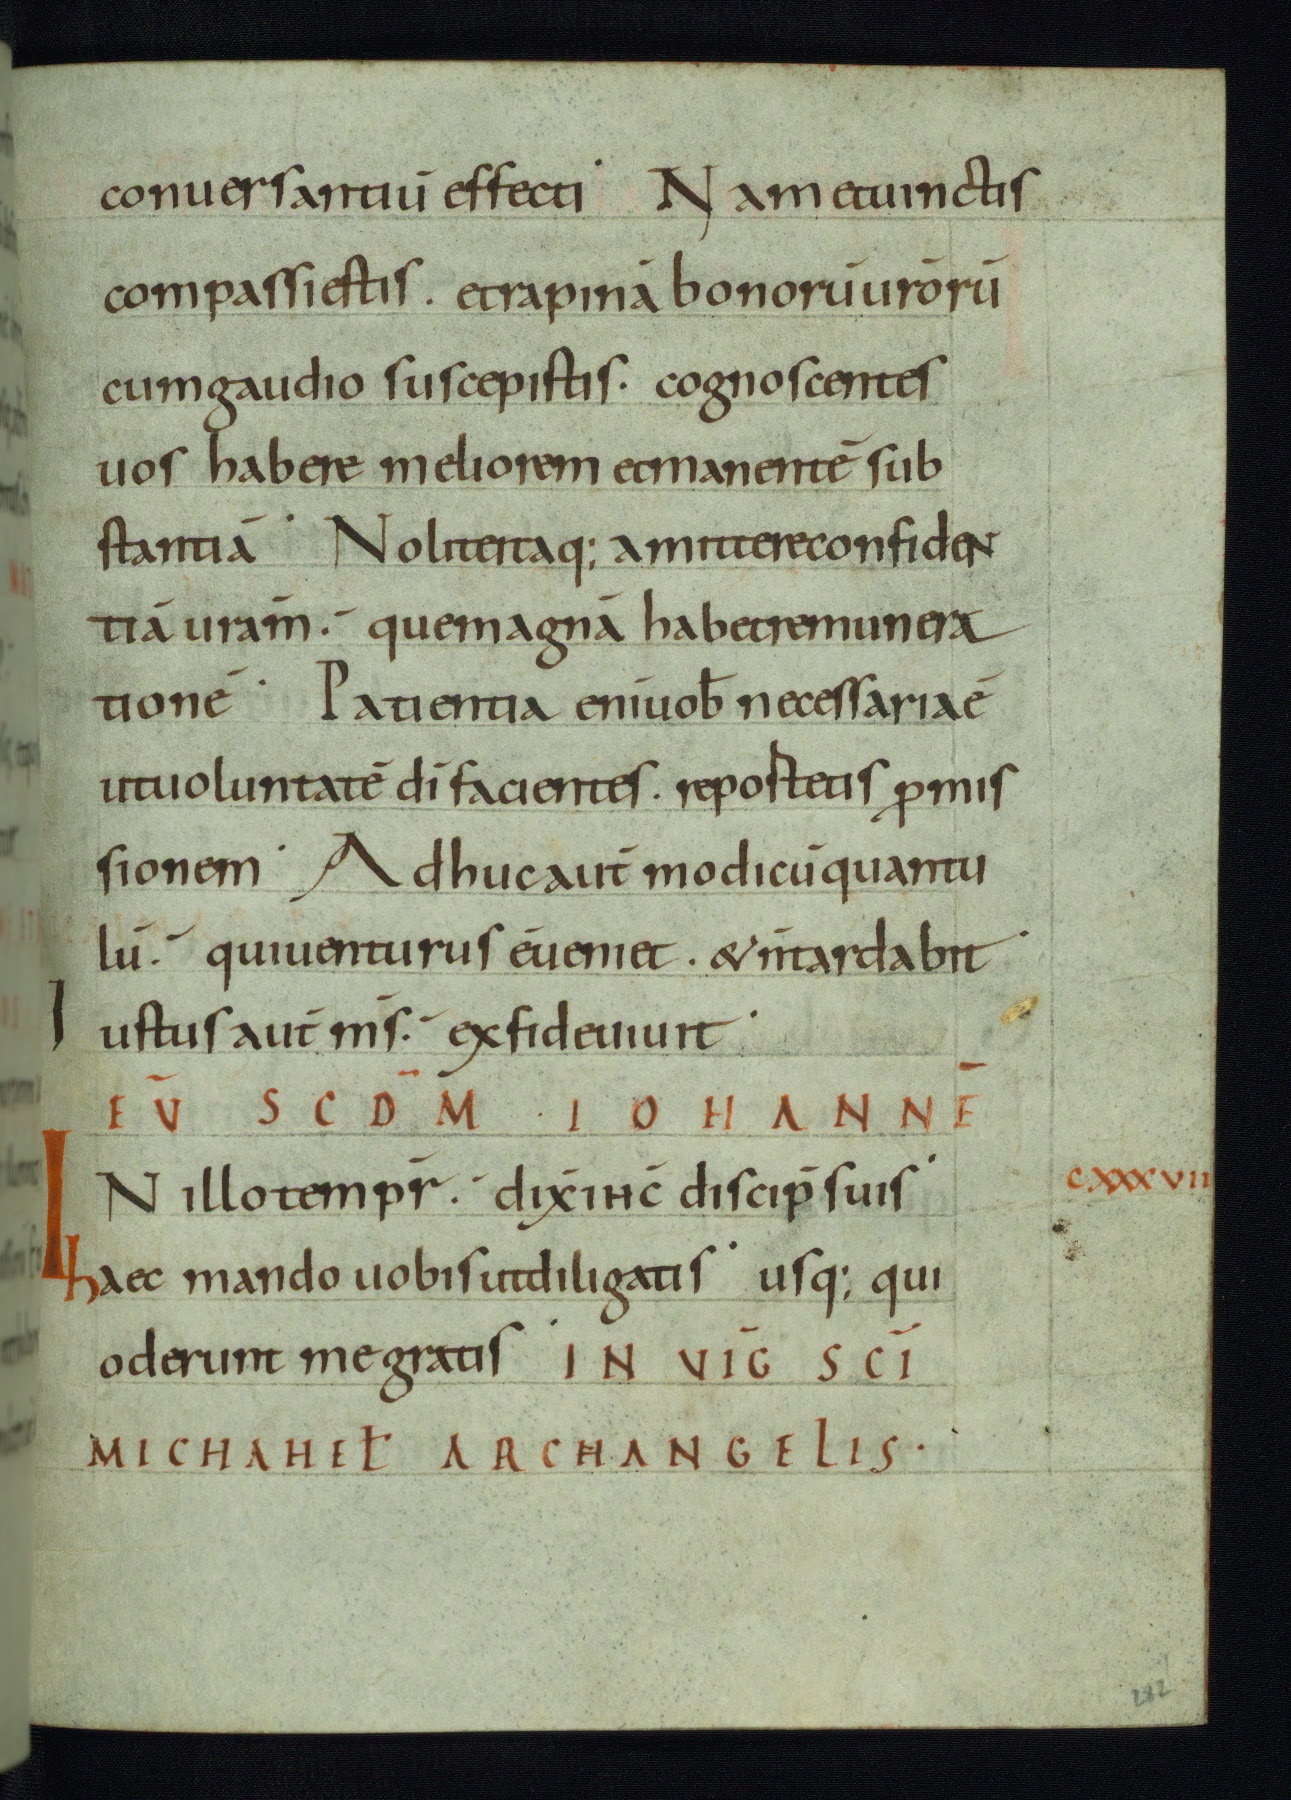 conuersantiū effecti· Nam etuinctis
compassiestis. etrapinā bonorūurōrū
cumgaudio suscepistis. cognoscentes
uos habere meliorem etmanentē sub
stantiā· Noliteitaq; amittereconfiden
tiā uram̄. quemagnā habetremunera
tionē· Patientia enīuob̄ necessariaē
utuoluntatē dī facientes. reportetis ꝓmis
sionem· Adhucaut̄ modicūquantu
lū. quiuenturus ēueniet. &n̄tardabit·
Iustusaut̄ m̄s. exfideuiuit·
EV̄ SCDM̄ · IOHANNĒ
IN illotempr̄. dix̄ ih̄c̄ discip̄ suis·
CXXXVII
haec mando uobisutdiligatis· usq; qui
oderunt megratis· IN VIḠ SC̄I
MICHAHEƚ ARCHANGELIS.
282